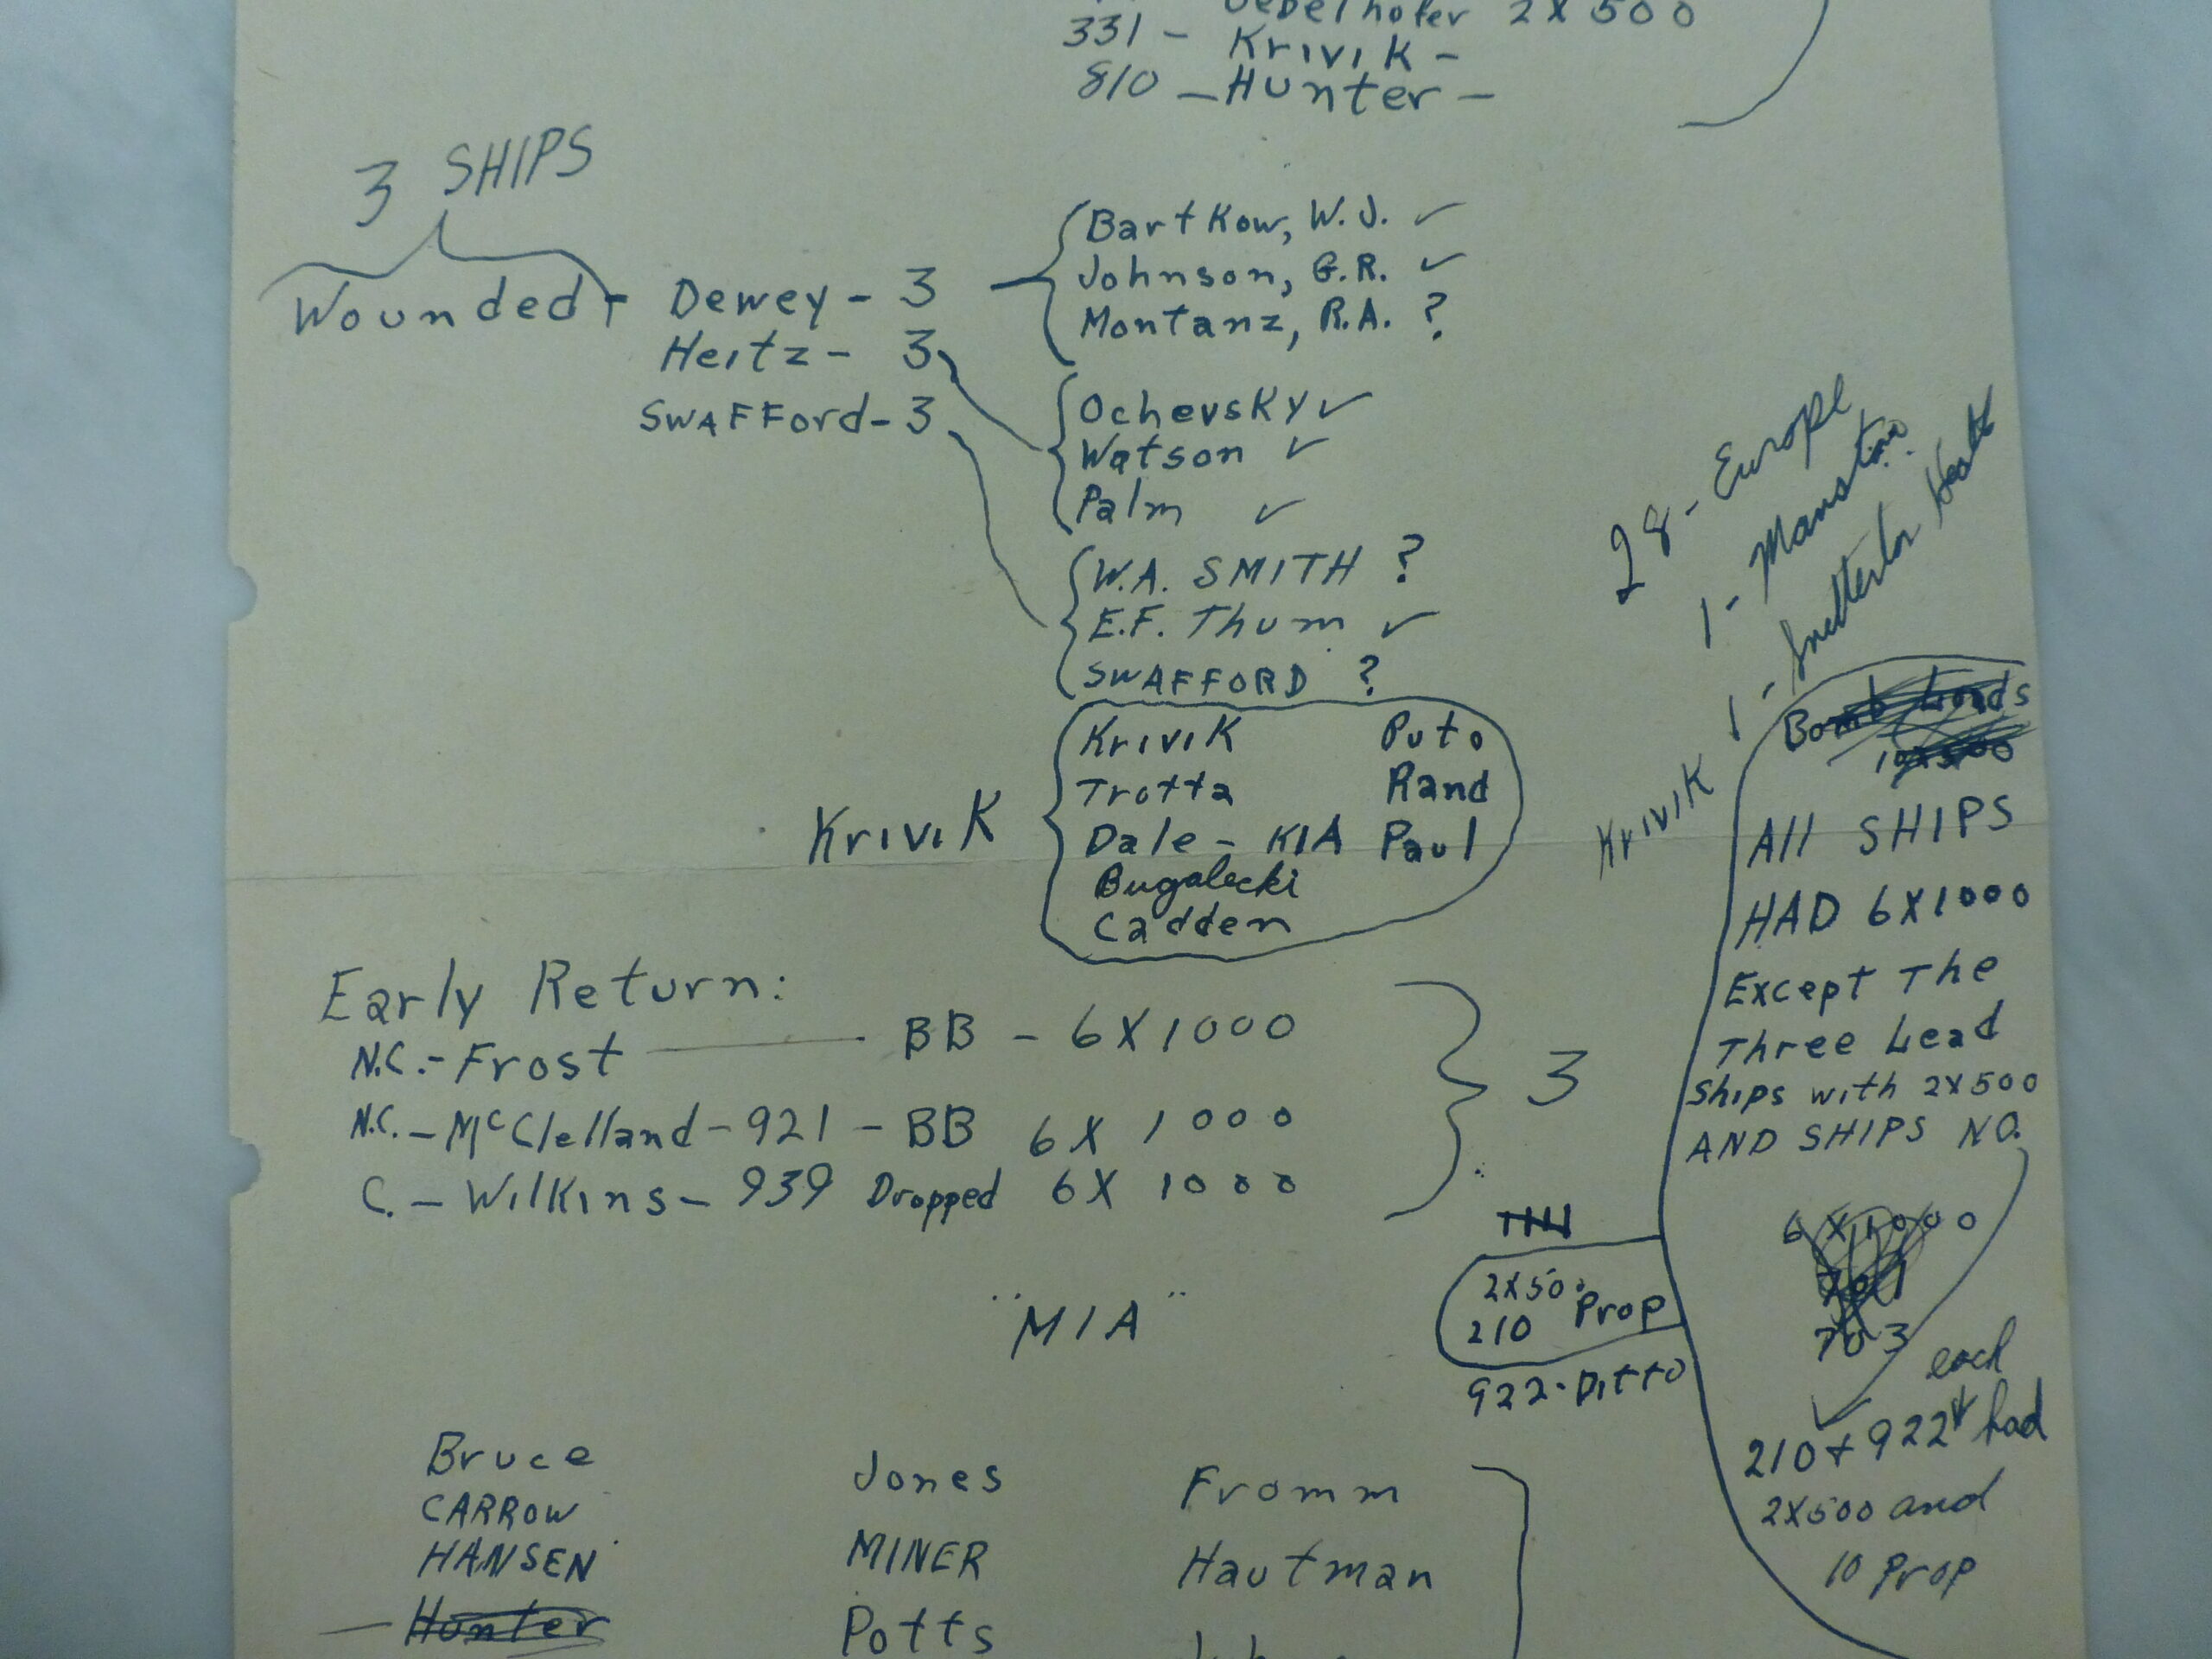 2 X 500
331 - Krivik -
810 - Hunter -
3 SHIPS
Wounded - Dewey - 3
Heitz - 3
SWAFFord - 3
Bartkow, W.J. ✓
Johnson, G.R. ✓
Montanz, R.A. ?
Ochevsky ✓
Watson ✓
Palm ✓
W.A. SMITH ?
E.F. Thum ✓
SWAFFORD ?
Krivik
Krivik Puto
Trotta Rand
Dale - KIA Paul
Bugalecki
Cadden
28 - Europe
1 - Manston
Krivik 1 - Snetterton Heath
Early Return:
N.C. - Frost — BB - 6X1000
N.C. - McClelland - 921 - BB 6X1000
C. - Wilkins - 939 Dropped 6X1000
3
Bomb Loads
All SHIPS
HAD 6X1000
Except The
Three Lead
Ships with 2X500
AND SHIPS NO.
6X1000
703
each
210 + 922 had
2X500 and
10 Prop
2X500
210 Prop
922 - Ditto
"MIA"
Bruce Jones Fromm
CARROW
HANSEN MINER Hautman
Hunter Potts